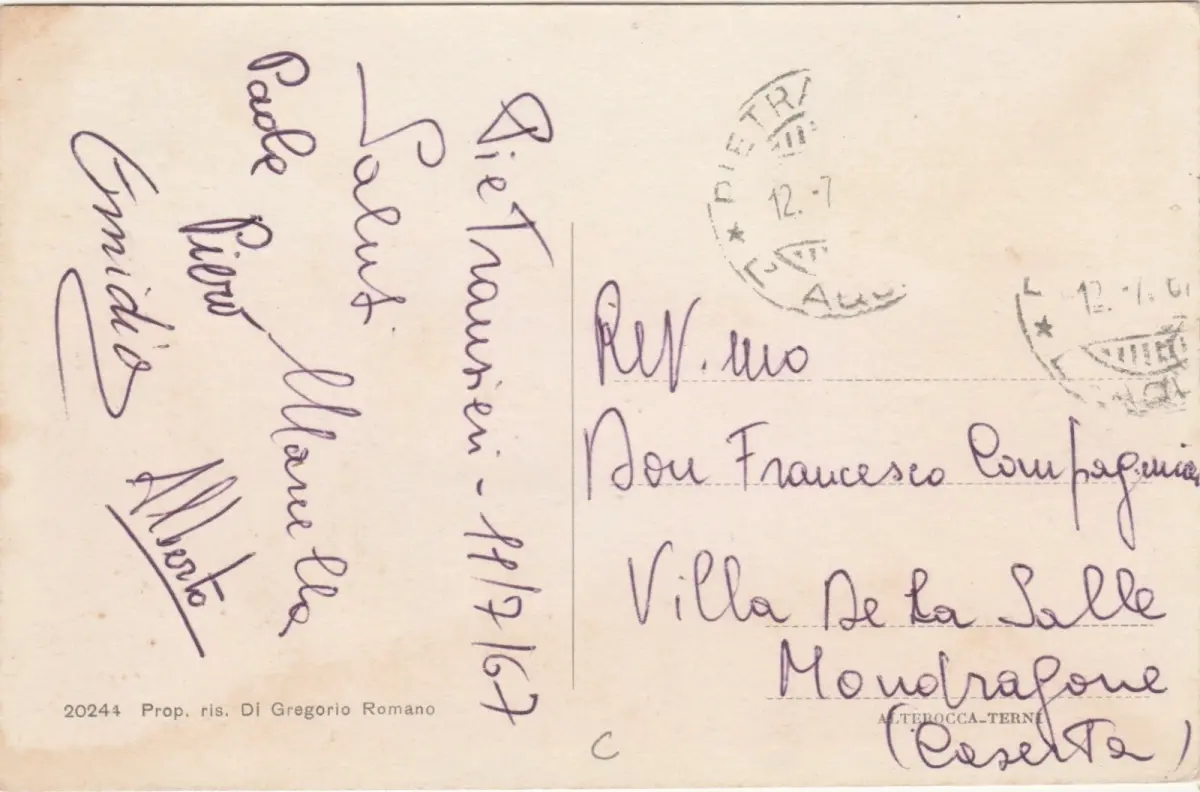 Pietransieri - 11/7/67
Saluti
Paola
Piero
Marcella
Emidio
Alberto
20244 Prop. ris. Di Gregorio Romano
PIETRA
12.-7
12.-7.67
Rev.mo
Don Francesco Compagnia
Villa De La Salle
Mondragone
ALTEROCCA-TERNI
(Caserta)
C